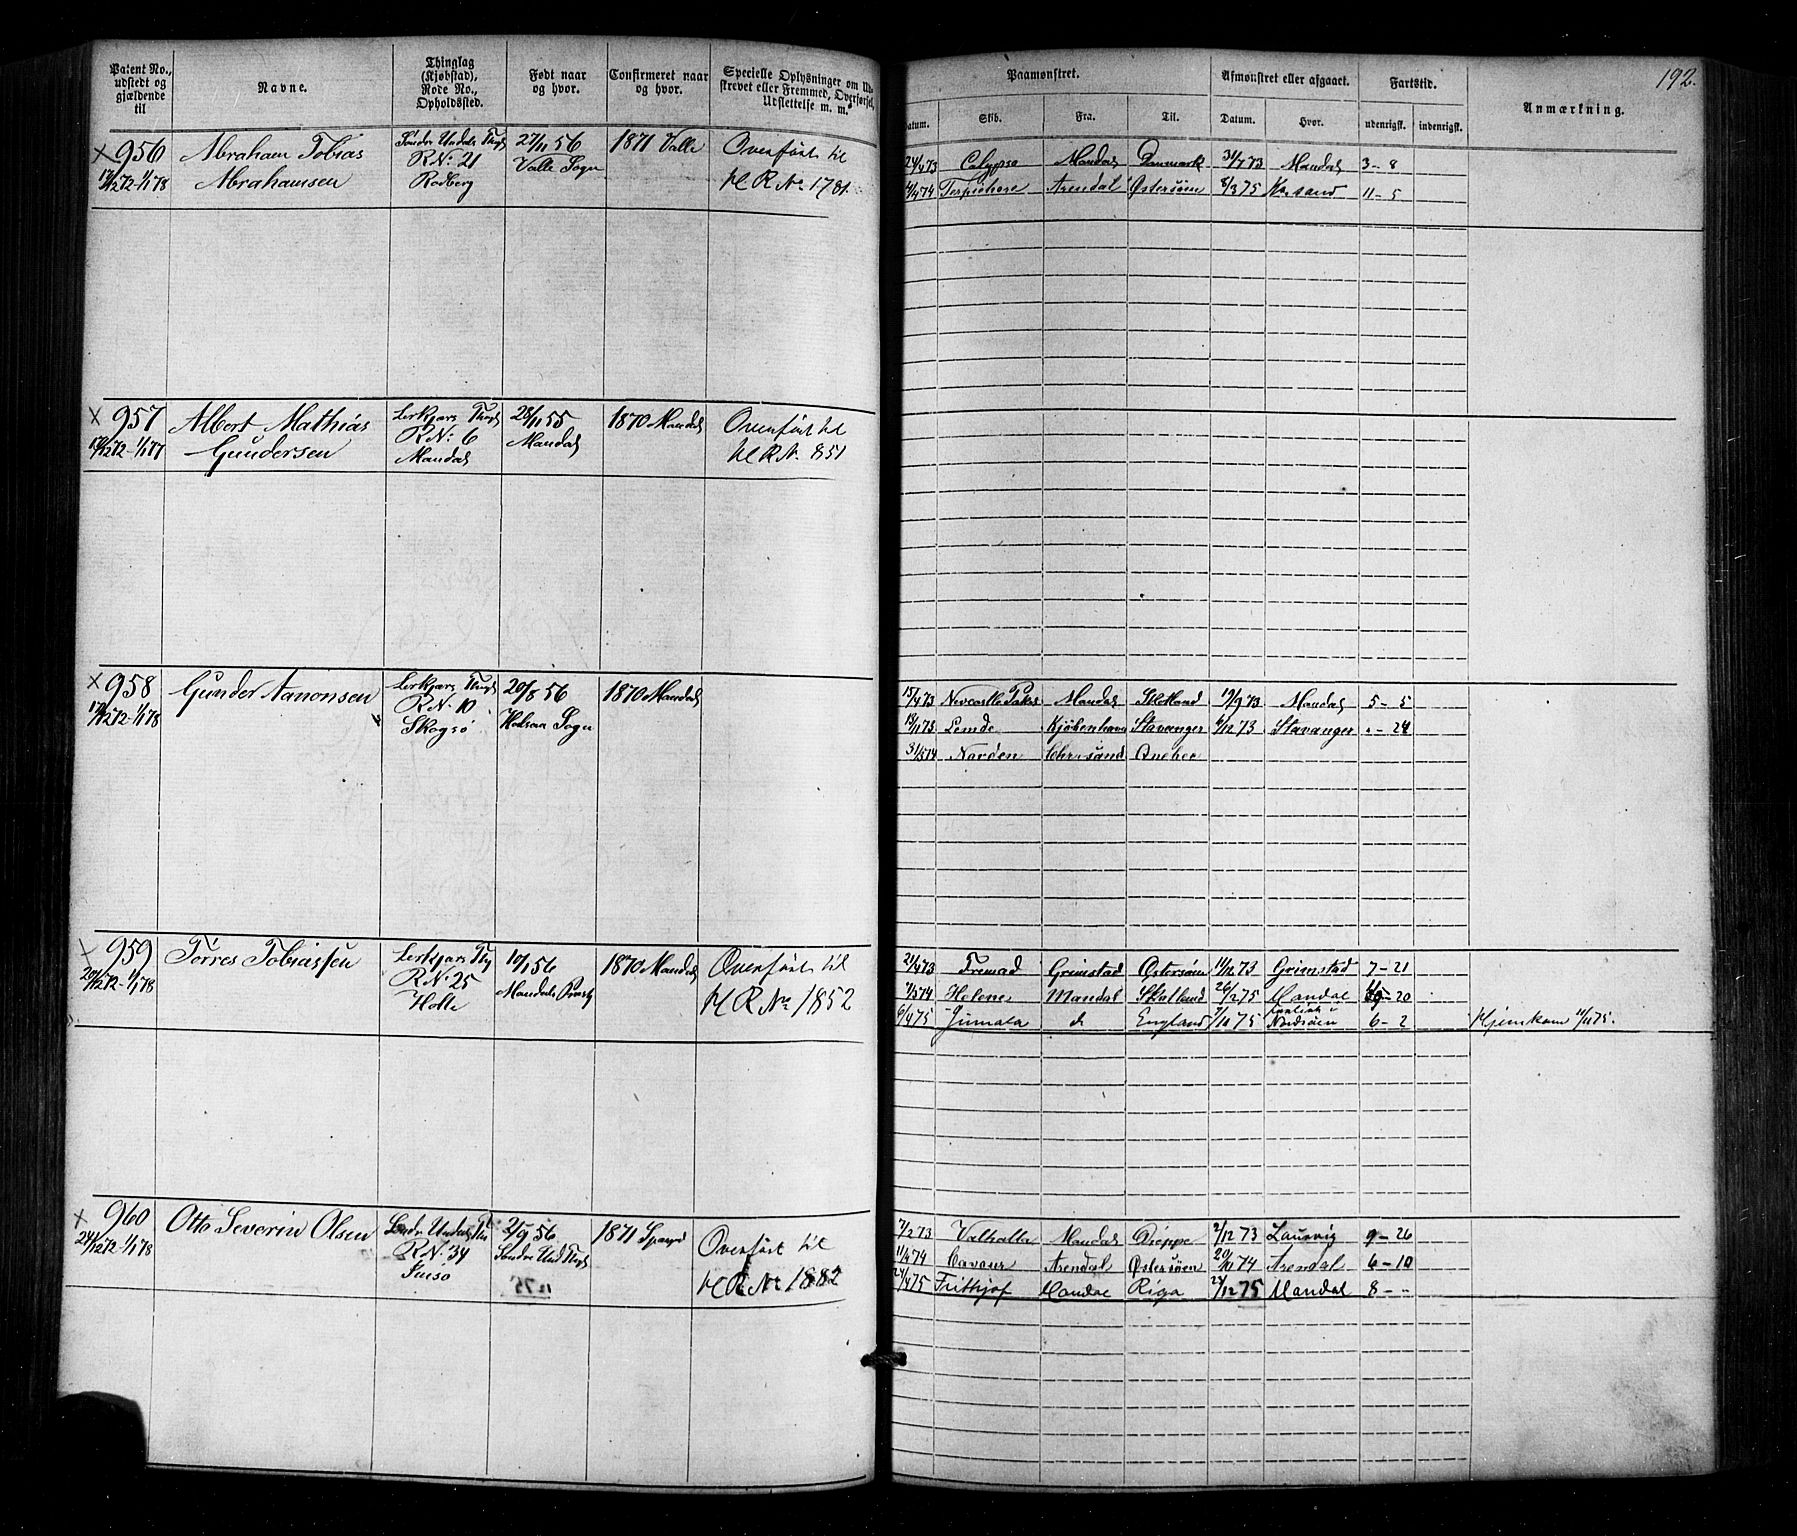 192.
Patent No., udstedt og gjældende til
Navne.
Thinglag (Kjøbstad), Rode No., Opholdssted.
Født naar og hvor.
Confirmeret naar og hvor.
Specielle Oplysninger om Udskrevet eller Fremmed, Overførsel, Udslettelse m. m.
Paamønstret.
Datum.
Skib.
Fra.
Til.
Afmønstret eller afgaaet.
Datum.
Hvor.
Fartstid.
udenrigsk.
indenrigsk.
Anmærkning.
× 956 Abraham Tobias Søndre Undals Thgl 27/11 56 1871 Valle Overført til
17/12 72 - 1/1 78 Abrahamsen R N: 21 Valle Sogn H R No 1781
Rødberg
24/4 73 Calypso Mandal Danmark 31/7 73 Mandal 3 - 8
4/4 74 Terpsichore Arendal Østersøen 8/3 75 Krsand 11 - 5
× 957 Albert Mathias Lerkjærs Thgl 28/11 55 1870 Mandal Overført til
17/12 72 - 1/1 77 Gundersen R N: 6 Mandal H R N. 851
Mandal
× 958 Gunder Aanonsen Lerkjærs Thgl 20/8 56 1870 Mandal
17/12 72 - 1/1 78 R N. 10 Halsaa Sogn
Skogsø
15/4 73 Newcastle Paket Mandal Shetland 19/9 73 Mandal 5 - 5
Kjøbenhavn Stavanger 6/12 73 Stavanger " - 24
31/5 74 Norden Chr.sand Quebec
× 959 Tørres Tobiassen Lerkjærs Thg 10/1 56 1870 Mandal Overført til
20/12 72 - 1/1 78 R N: 25 Mandals Præstg H R No 1852
Holte
21/4 73 Fremad Grimstad Østersøen 11/12 73 Grimstad 7 - 21
7/5 74 Helene Mandal Shetland 26/2 75 Mandal 20
6/4 75 Jumala do England 7/10 75 Nordsøen 6 - 2 Hjemkom 11/11 75.
× 960 Otto Severin Olsen Søndre Undals Th 2/9 56 1871 Spangd Overført til
24/12 72 - 1/1 78 R N: 34 Søndre Und Thgl H R No 1882
7/2 73 Valhalla Mandal Dieppe 2/12 73 Laurvig 9 - 26
11/4 74 Cavour Arendal Østersøen 20/10 74 Arendal 6 - 10
24/4 75 Frithjof Mandal Riga 24/12 75 Mandal 8 - -